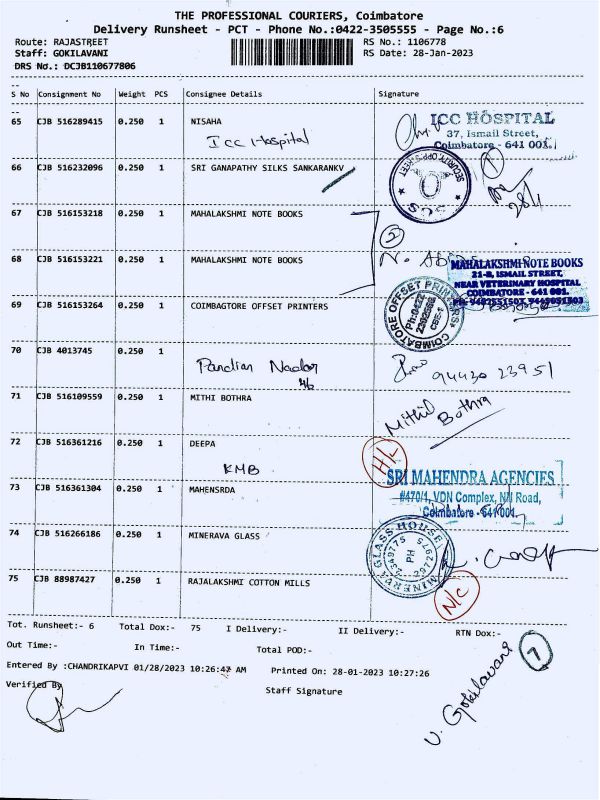 THE PROFESSIONAL COURIERS, Coimbatore
Delivery Runsheet - PCT - Phone No.:0422-3505555 - Page No.:6
Route: RAJASTREET
RS No.: 1106778
Staff: GOKILAVANI
RS Date: 28-Jan-2023
DRS No.: DCJB110677806
S No Consignment No Weight PCS Consignee Details Signature
65 CJB 516289415 0.250 1 NISAHA
ICC Hospital
ICC HOSPITAL
37, Ismail Street,
Coimbatore - 641 001.
66 CJB 516232096 0.250 1 SRI GANAPATHY SILKS SANKARANKV
1
28/1
67 CJB 516153218 0.250 1 MAHALAKSHMI NOTE BOOKS
2
68 CJB 516153221 0.250 1 MAHALAKSHMI NOTE BOOKS
MAHALAKSHMI NOTE BOOKS
21-B, ISMAIL STREET,
NEAR VETERINARY HOSPITAL
COIMBATORE - 641 001.
69 CJB 516153264 0.250 1 COIMBAGTORE OFFSET PRINTERS
COIMBATORE OFFSET PRINTERS
70 CJB 4013745 0.250 1
Pandian Nadar
94430 23951
71 CJB 516109559 0.250 1 MITHI BOTHRA
Mithil
Bothra
72 CJB 516361216 0.250 1 DEEPA
KMB
H/L
73 CJB 516361304 0.250 1 MAHENSRDA
SRI MAHENDRA AGENCIES
#470/1, VDN Complex, NH Road,
Coimbatore - 641 001.
74 CJB 516266186 0.250 1 MINERAVA GLASS
MINERVA GLASS HOUSE
PH
75 CJB 88987427 0.250 1 RAJALAKSHMI COTTON MILLS
N/C
Tot. Runsheet:- 6 Total Dox:- 75 I Delivery:- II Delivery:- RTN Dox:-
Out Time:- In Time:- Total POD:-
7
Entered By :CHANDRIKAPVI 01/28/2023 10:26:42 AM Printed On: 28-01-2023 10:27:26
Verified By
Staff Signature
U. Gokilavani